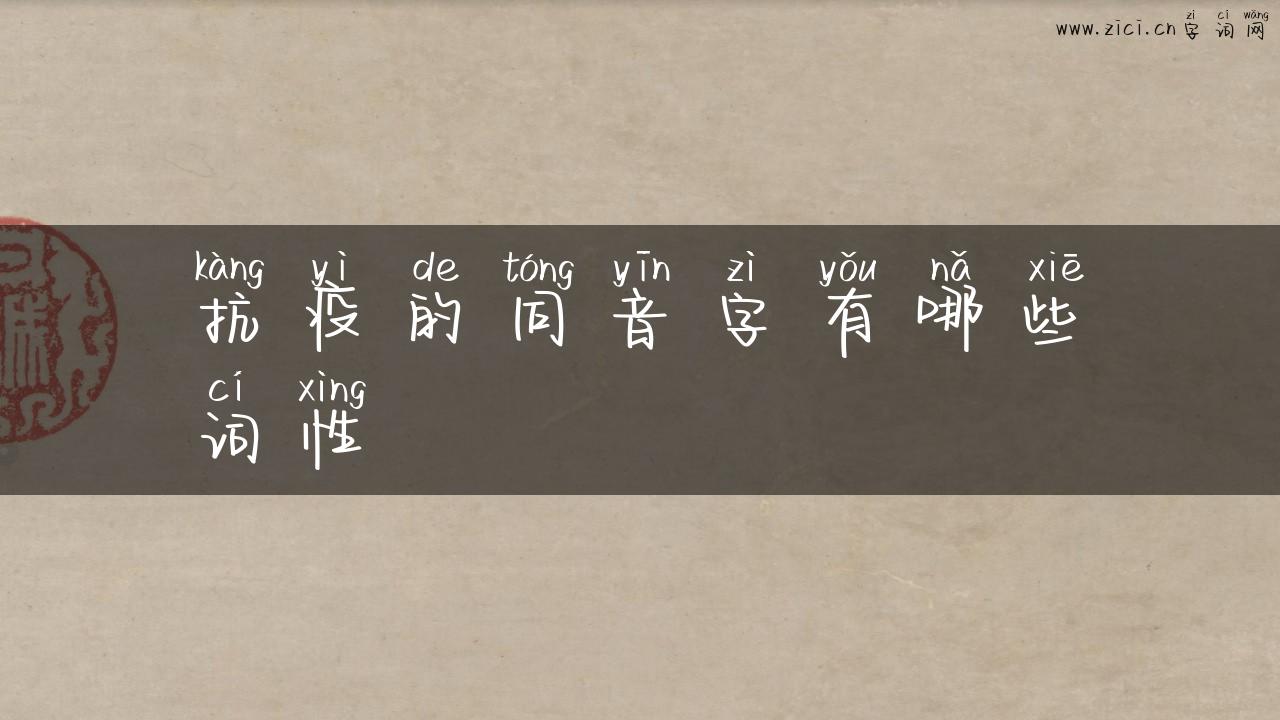 zì cí wǎng
www.zici.cn 字词网
kàng yì de tóng yīn zì yǒu nǎ xiē
抗疫的同音字有哪些
cí xìng
词性